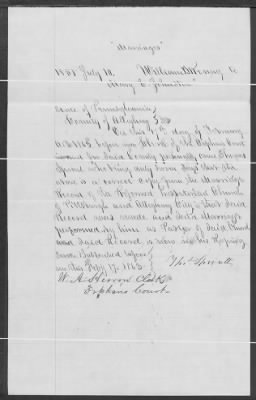 "Marriages"
1851 July 10. William Kenny to
Mary E. Johnston
State of Pennsylvania
County of Allegheny } SS
On this 17th day of February
A.D. 1865 before me Clerk of the Orphans Court
in and for said County personally came Thomas
Sproul who being duly sworn says that the
above is a correct copy from the Marriage
Record of the Reformed Presbyterian Church
of Pittsburgh and Allegheny City that said
Record was made and said Marriage
performed by him as Pastor of said Church
and said Record is now in his keeping
Sworn & Subscribed before
me this Feby 17. 1865
Thos Sproull
W. A. Herron Clerk
Orphans Court